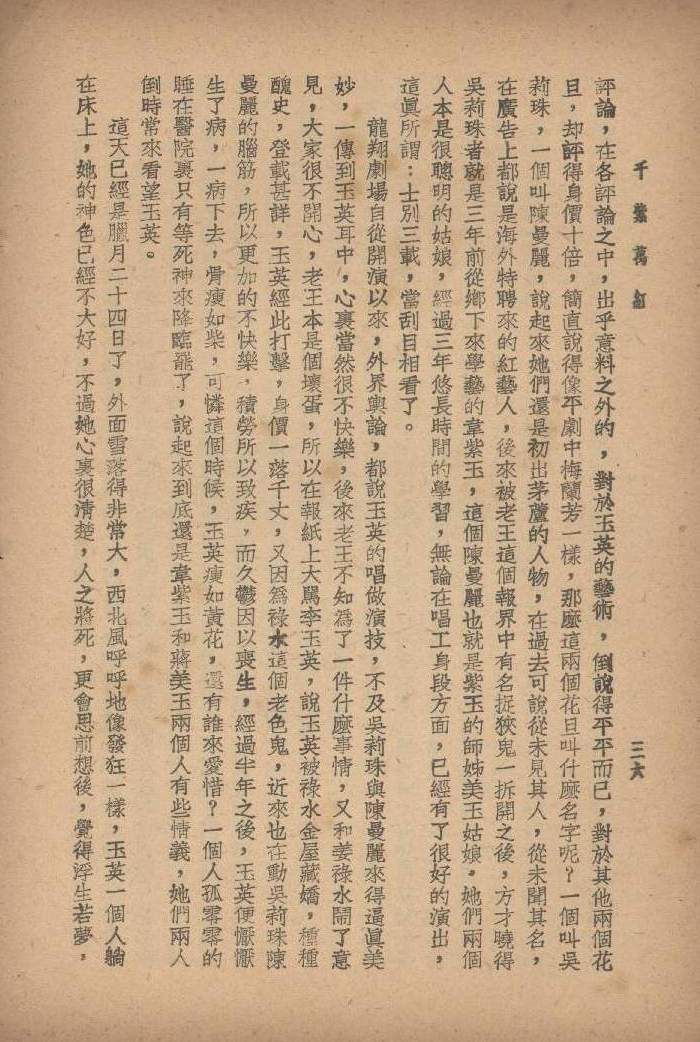 千紫萬紅
三六
評論，在各評論之中，出乎意料之外的，對於玉英的藝術，倒說得平平而已，對於其他兩個花
旦，却評得身價十倍，簡直說得像平劇中梅蘭芳一樣，那麼這兩個花旦叫什麼名字呢？一個叫吳
莉珠，一個叫陳曼麗，說起來她們還是初出茅蘆的人物，在過去可說從未見其人，從未聞其名，
在廣告上都說是海外特聘來的紅藝人，後來被老王這個報界中有名捉狹鬼一拆開之後，方才曉得
吳莉珠者就是三年前從鄉下來學藝的韋紫玉，這個陳曼麗也就是紫玉的師姊美玉姑娘。她們兩個
人本是很聰明的姑娘，經過三年悠長時間的學習，無論在唱工身段方面，已經有了很好的演出，
這眞所謂：士別三載，當刮目相看了。
龍翔劇場自從開演以來，外界輿論，都說玉英的唱做演技，不及吳莉珠與陳曼麗來得逼眞美
妙，一傳到玉英耳中，心裏當然很不快樂，後來老王不知爲了一件什麼事情，又和姜祿水鬧了意
見，大家很不開心，老王本是個壞蛋，所以在報紙上大罵李玉英，說玉英被祿水金屋藏嬌，種種
醜史，登載甚詳，玉英經此打擊，身價一落千丈，又因爲祿水這個老色鬼，近來也在動吳莉珠陳
曼麗的腦筋，所以更加的不快樂，積勞所以致疾，而久鬱因以喪生，經過半年之後，玉英便懨懨
生了病，一病下去，骨瘦如柴，可憐這個時候，玉英瘦如黃花，還有誰來愛惜？一個人孤零零的
睡在醫院裏只有等死神來降臨罷了，說起來到底還是韋紫玉和蔣美玉兩個人有些情義，她們兩人
倒時常來看望玉英。
這天已經是臘月二十四日了，外面雪落得非常大，西北風呼呼地像發狂一樣，玉英一個人躺
在床上，她的神色已經不大好，不過她心裏很清楚，人之將死，更會思前想後，覺得浮生若夢，